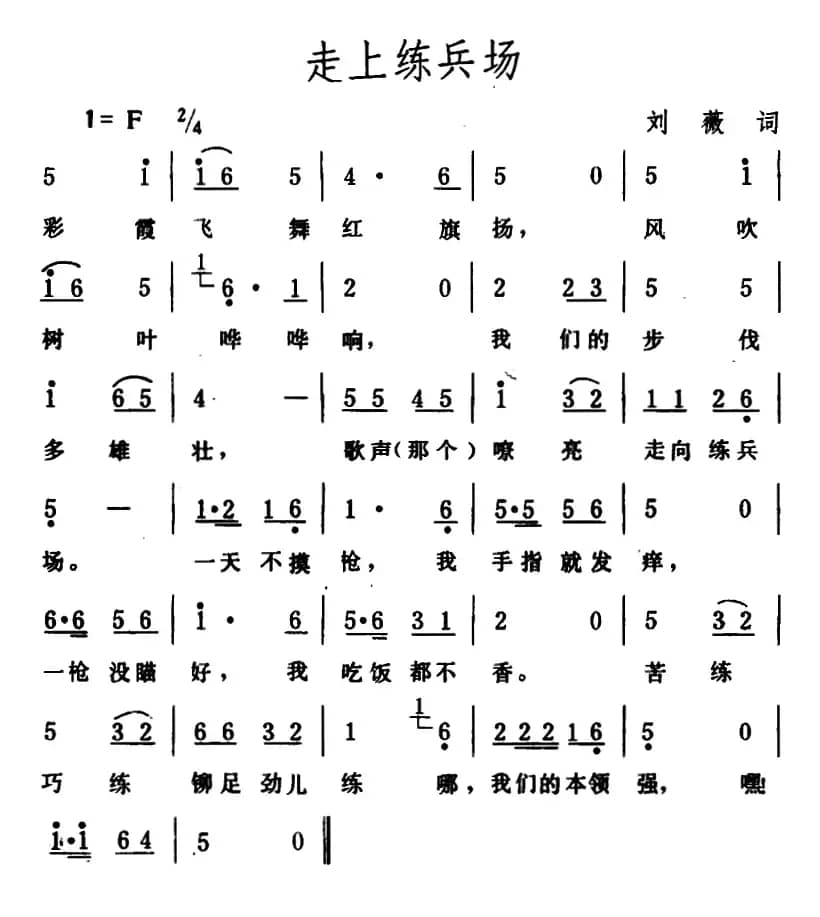 走上练兵场
1=F 2/4 刘薇词
5 i | i 6 5 | 4 · 6 | 5 0 | 5 i |
彩霞飞舞红旗扬，风吹
i 6 5 | 1 6 · 1 | 2 0 | 2 2 3 | 5 5 |
树叶哗哗响，我们的步伐
i 6 5 | 4 — | 5 5 4 5 | i 3 2 | 1 1 2 6 |
多雄壮，歌声（那个）嘹亮走向练兵
5 — | 1·2 1 6 | 1· 6 | 5·5 5 6 | 5 0 |
场。一天不摸枪，我手指就发痒，
6·6 5 6 | i· 6 | 5·6 3 1 | 2 0 | 5 3 2 |
一枪没瞄好，我吃饭都不香。苦练
5 3 2 | 6 6 3 2 | 1 1 6 | 2 2 2 1 6 | 5 0 |
巧练铆足劲儿练哪，我们的本领强，嘿
i·i 6 4 | 5 0 ‖